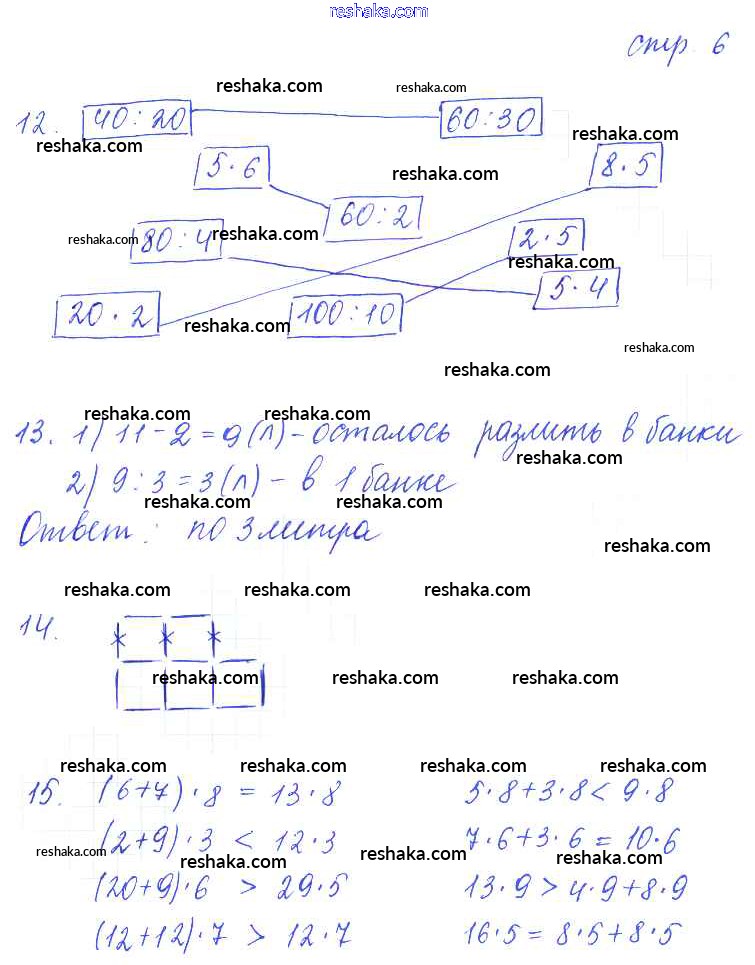 reshaka.com
стр. 6
reshaka.com reshaka.com
12. 40:20 60:30
reshaka.com reshaka.com
5·6 reshaka.com 8·5
60:2
reshaka.com 80:4 reshaka.com 2·5
reshaka.com
5·4
20·2 reshaka.com 100:10
reshaka.com
reshaka.com
reshaka.com reshaka.com reshaka.com
13. 1) 11-2=9(л)-осталось разлить в банки
reshaka.com
2) 9:3=3(л)-в 1 банке
reshaka.com reshaka.com
Ответ: по 3 литра
reshaka.com
reshaka.com reshaka.com reshaka.com
14.
reshaka.com reshaka.com reshaka.com
reshaka.com reshaka.com reshaka.com reshaka.com
15. (6+7)·8 = 13·8 5·8+3·8 < 9·8
(2+9)·3 < 12·3 7·6+3·6 = 10·6
reshaka.com reshaka.com reshaka.com reshaka.com
(20+9)·6 > 29·5 13·9 > 4·9+8·9
(12+12)·7 > 12·7 16·5 = 8·5+8·5